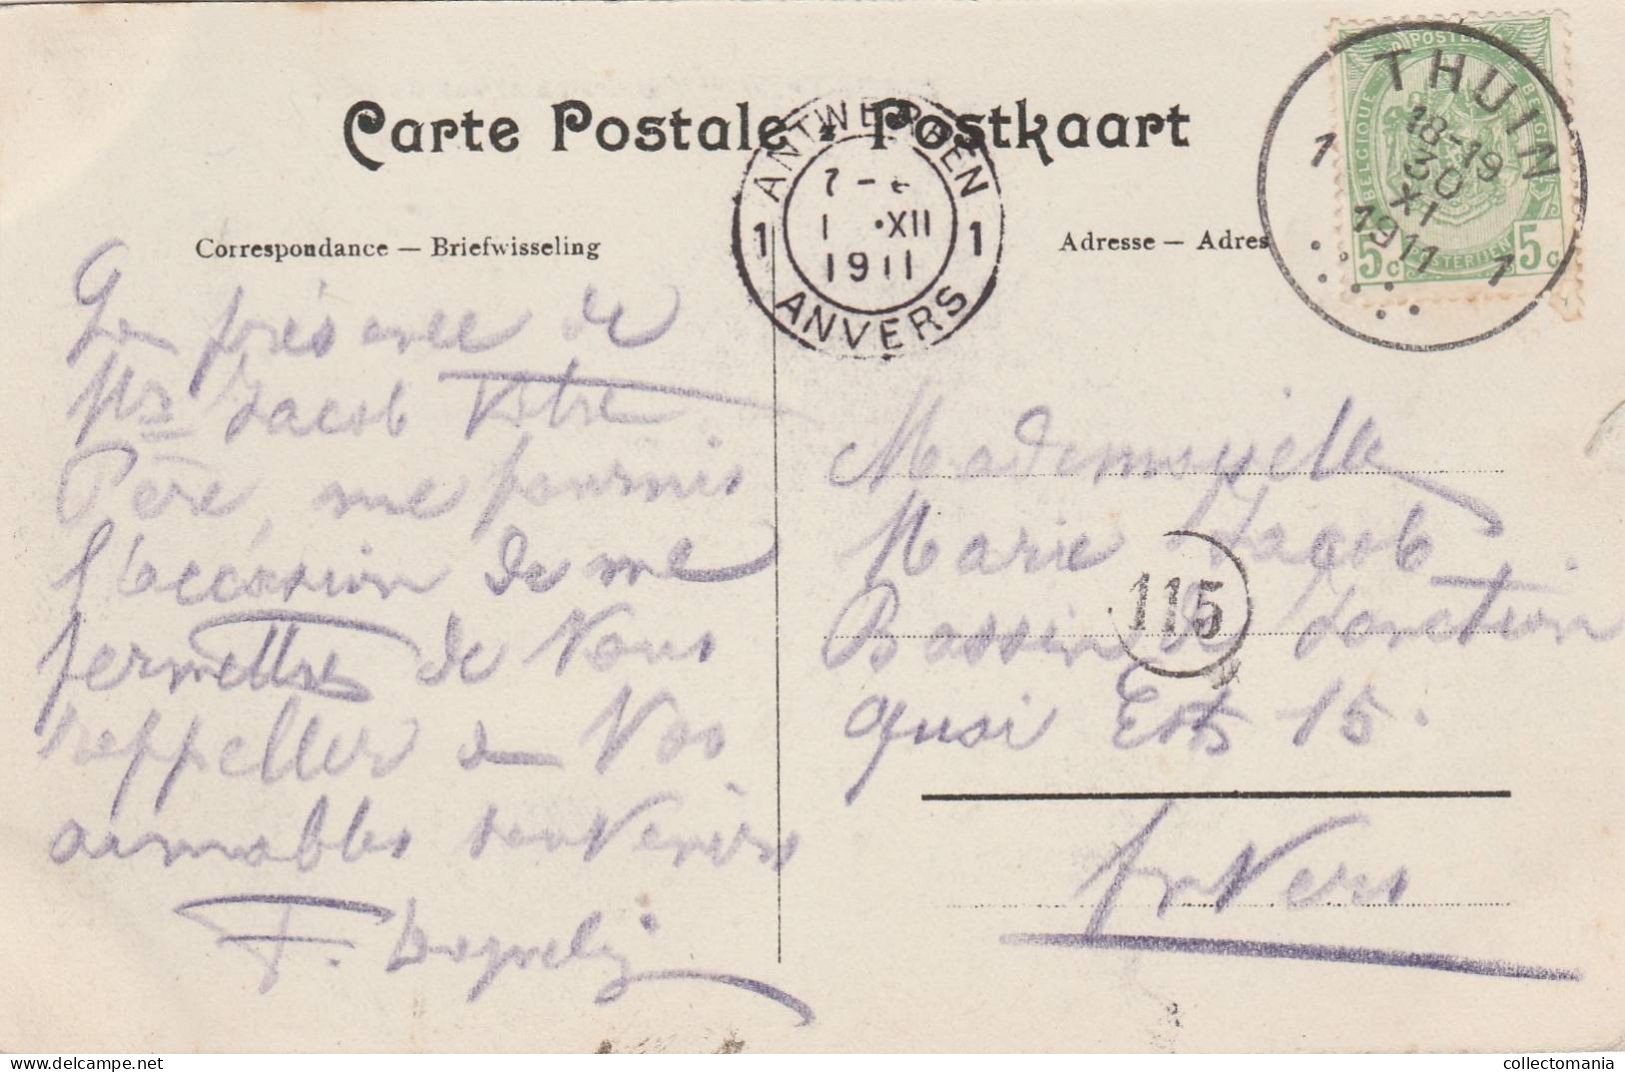 Carte Postale * Postkaart
Correspondance — Briefwisseling
Adresse — Adres
ANTWERPEN
1 1
7 -
1 · XII
1911
ANVERS
THUIN
1 18-19
30
XI
1911
1
POSTES
BELGIQUE
BELGIE
POSTERIJEN
5c 5c
La présence de
Mr Jacob Votre
Père, me fournis
l'occasion de me
permettre de Vous
rappeller à Vos
aimables souvenirs
F.
Mademoiselle
Marie Jacob
115
Bassin de Jonction
quai Est 15.
Anvers
collectomania